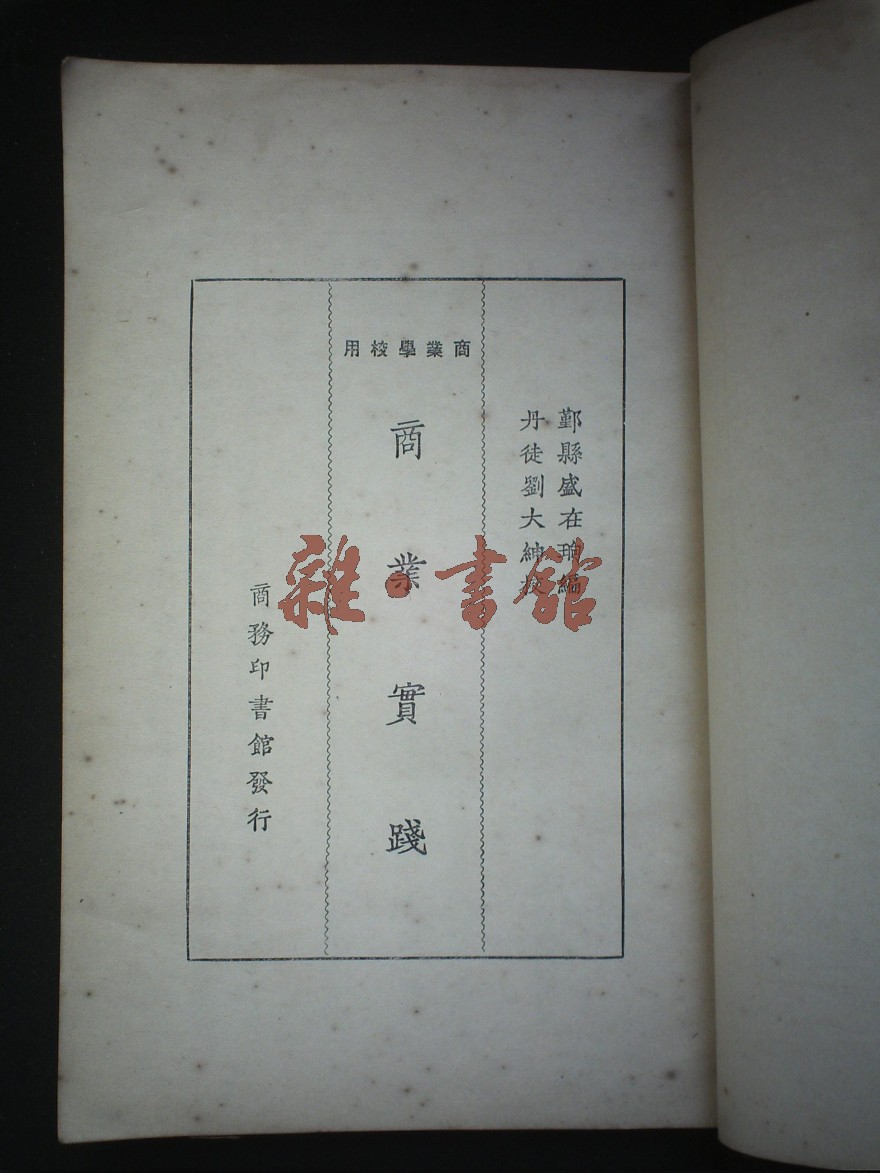 鄞縣盛在珦編
丹徒劉大紳校
商業學校用
商業實踐
商務印書館發行
雜書館